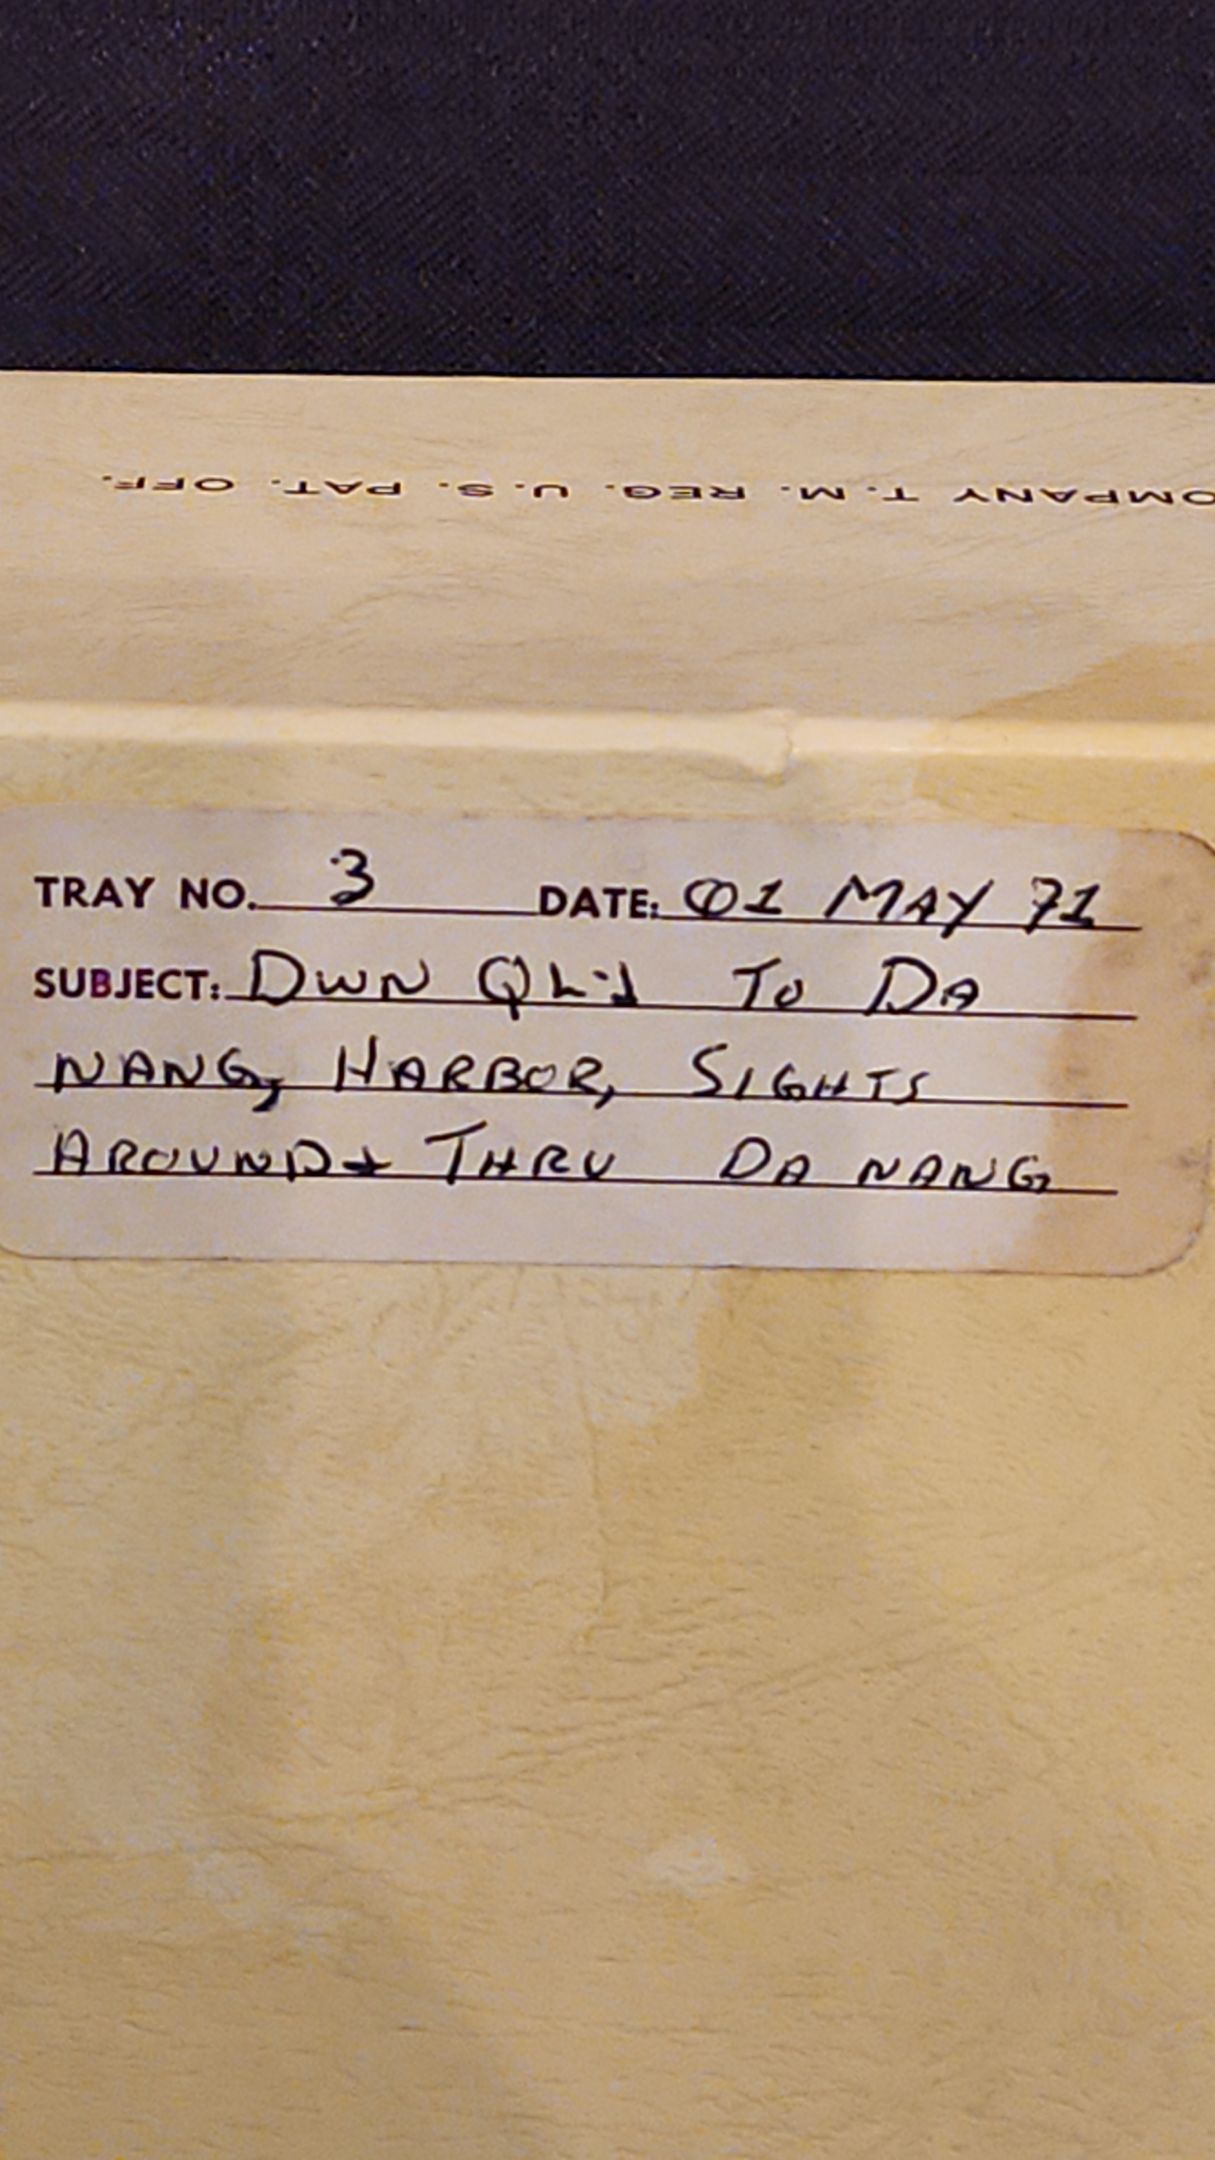 OMPANY T. M. REG. U. S. PAT. OFF.
TRAY NO. 3 DATE: 01 MAY 71
SUBJECT: DWN QL-1 TO DA
NANG, HARBOR, SIGHTS
AROUND + THRU DA NANG